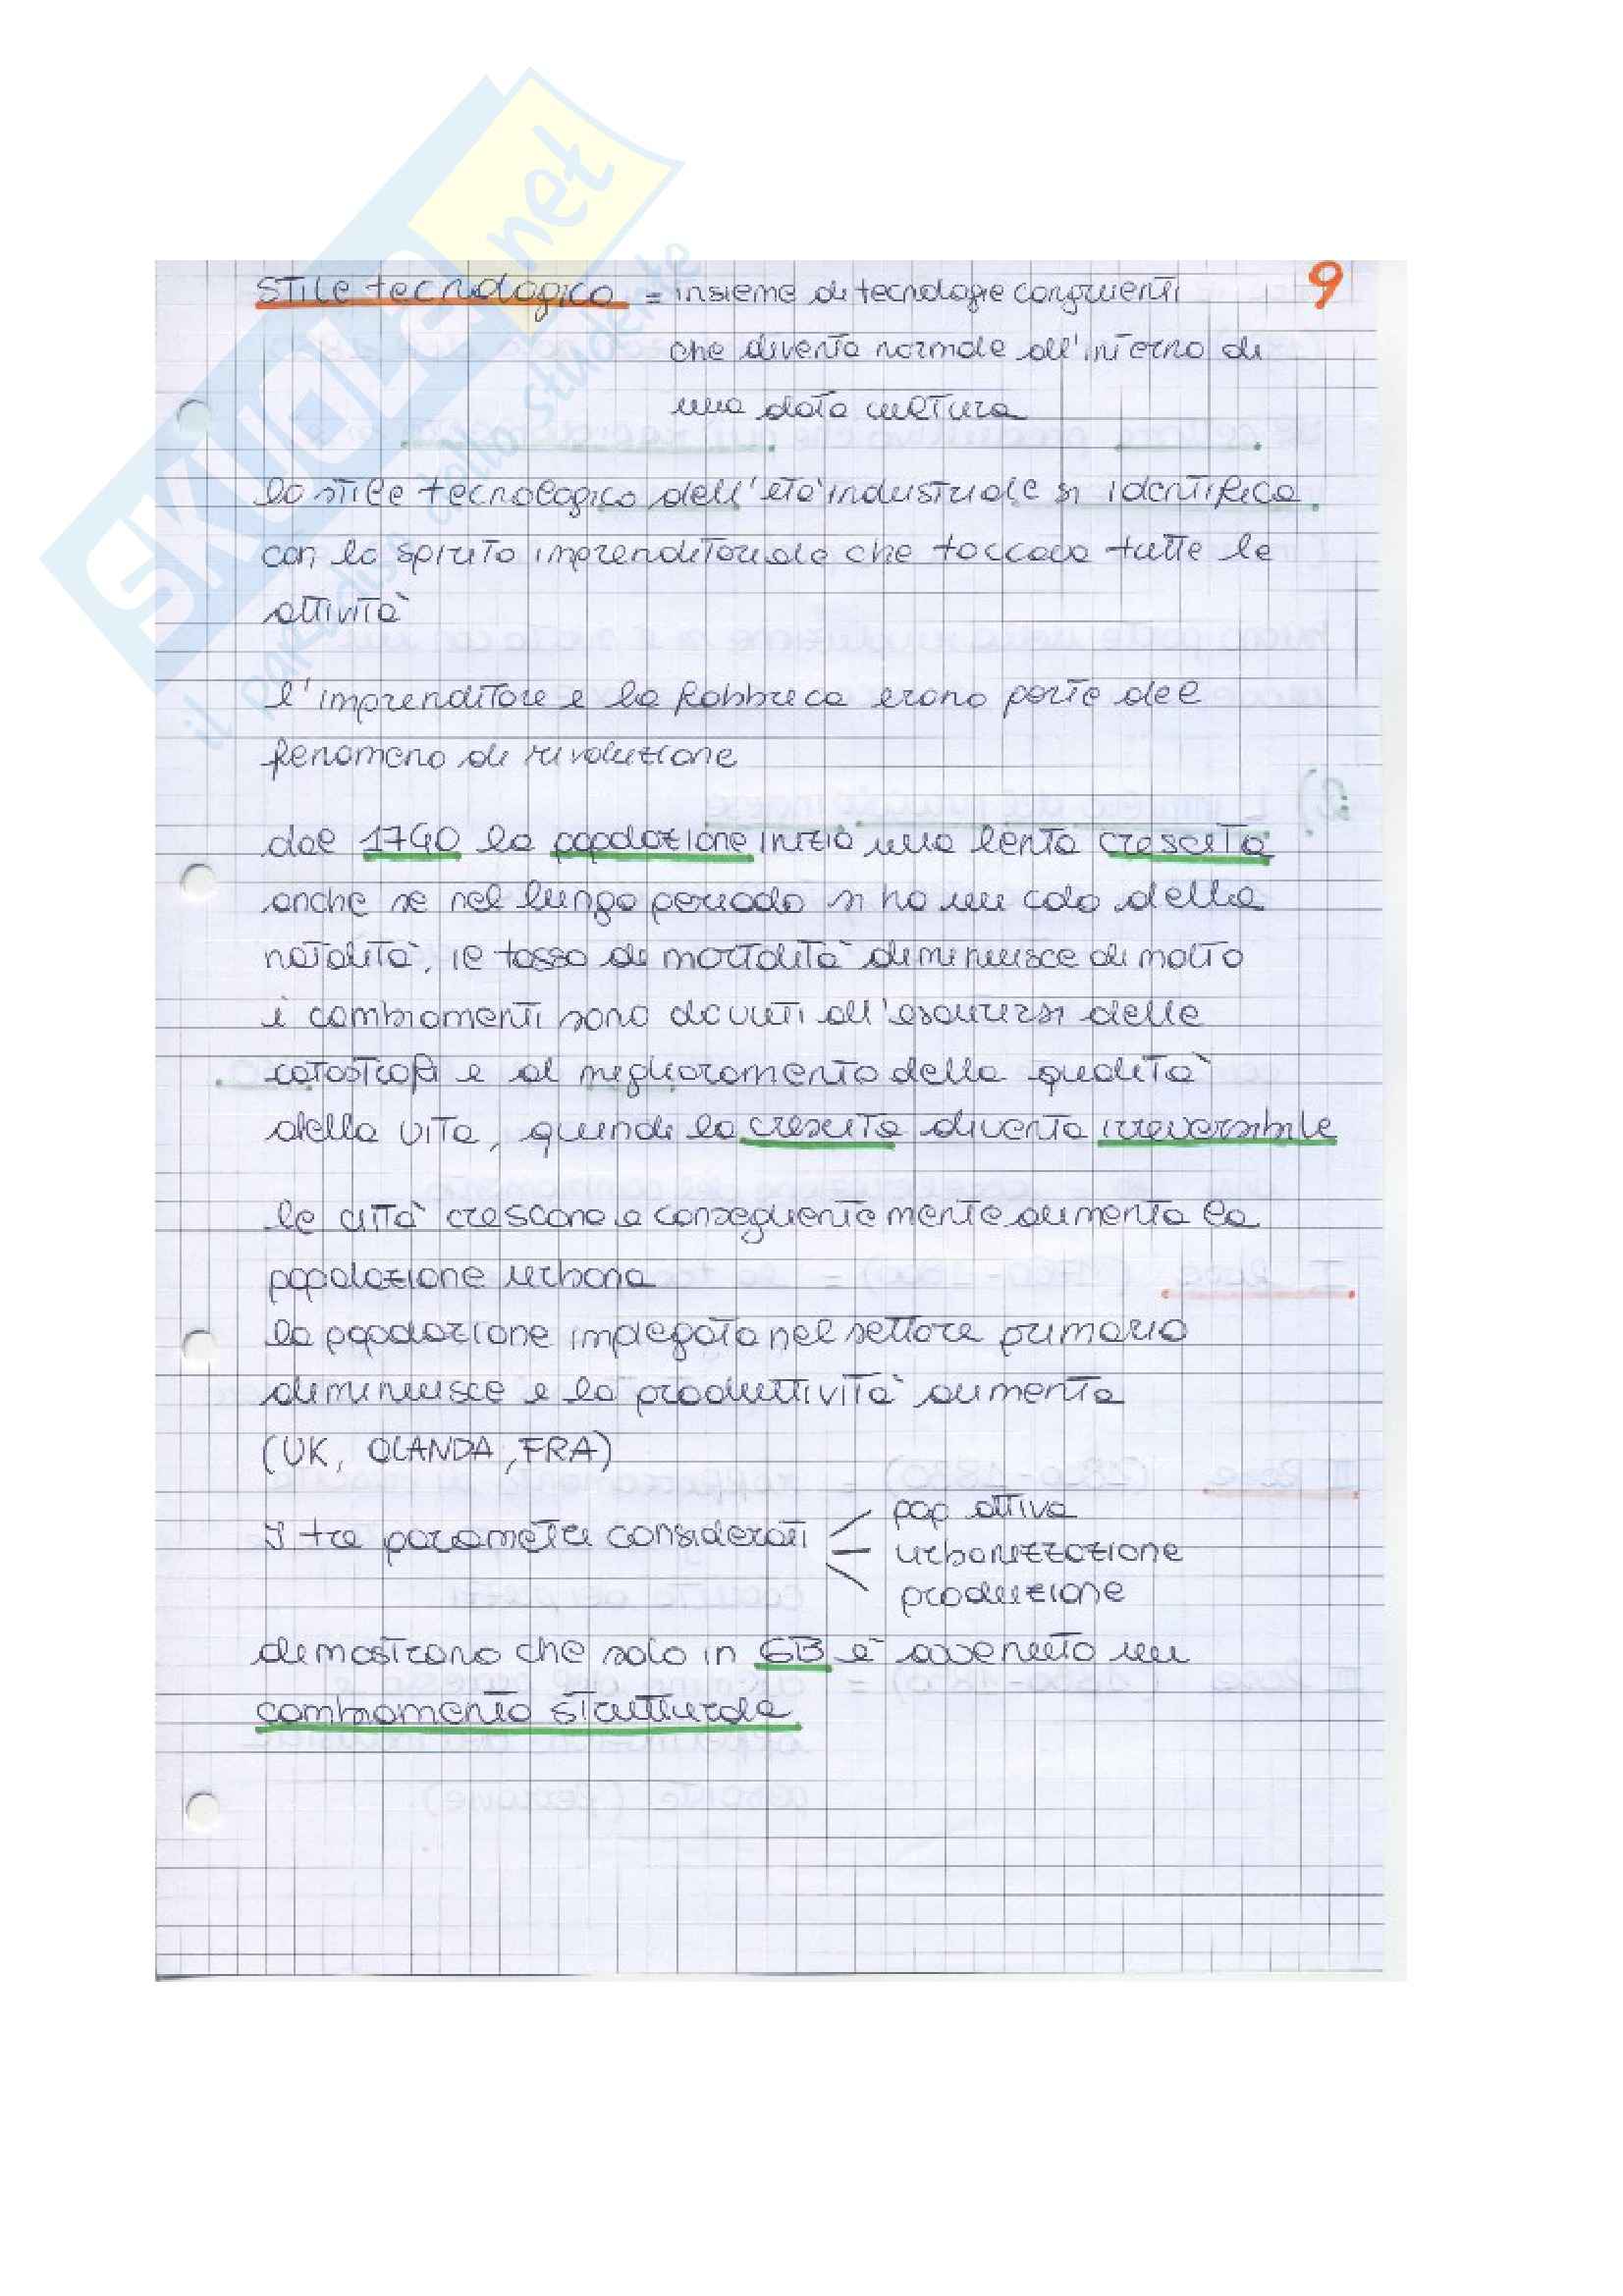 SKUOLA.net
il paradiso dello studente
9
Stile tecnologico = insieme di tecnologie congruenti
che diventa normale all'interno di
una data cultura
lo stile tecnologico dell'età industriale si identifica
con lo spirito imprenditoriale che toccava tutte le
attività
l'imprenditore e la fabbrica erano parte del
fenomeno di rivoluzione
dal 1740 la popolazione inizia una lenta crescita
anche se nel lungo periodo si ha un calo della
natalità, il tasso di mortalità diminuisce di molto
i cambiamenti sono dovuti all'esaurirsi delle
catastrofi e al miglioramento della qualità
della vita, quindi la crescita diventa irreversibile
le città crescono e conseguentemente aumenta la
popolazione urbana
la popolazione impiegata nel settore primario
diminuisce e la produttività aumenta
(UK, OLANDA, FRA)
I tre parametri considerati
pop attiva
urbanizzazione
produzione
dimostrano che solo in GB è avvenuto un
cambiamento strutturale